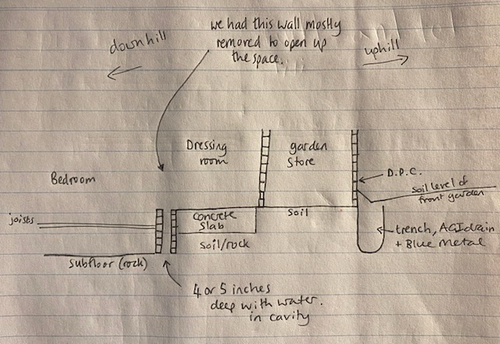 we had this wall mostly
removed to open up
the space.
downhill
uphill
Dressing
room
garden
store
Bedroom
D.P.C.
soil level of
front garden
joists
concrete
slab
soil
soil/rock
trench, AGI drain
+ Blue Metal
subfloor (rock)
4 or 5 inches
deep with water.
in cavity